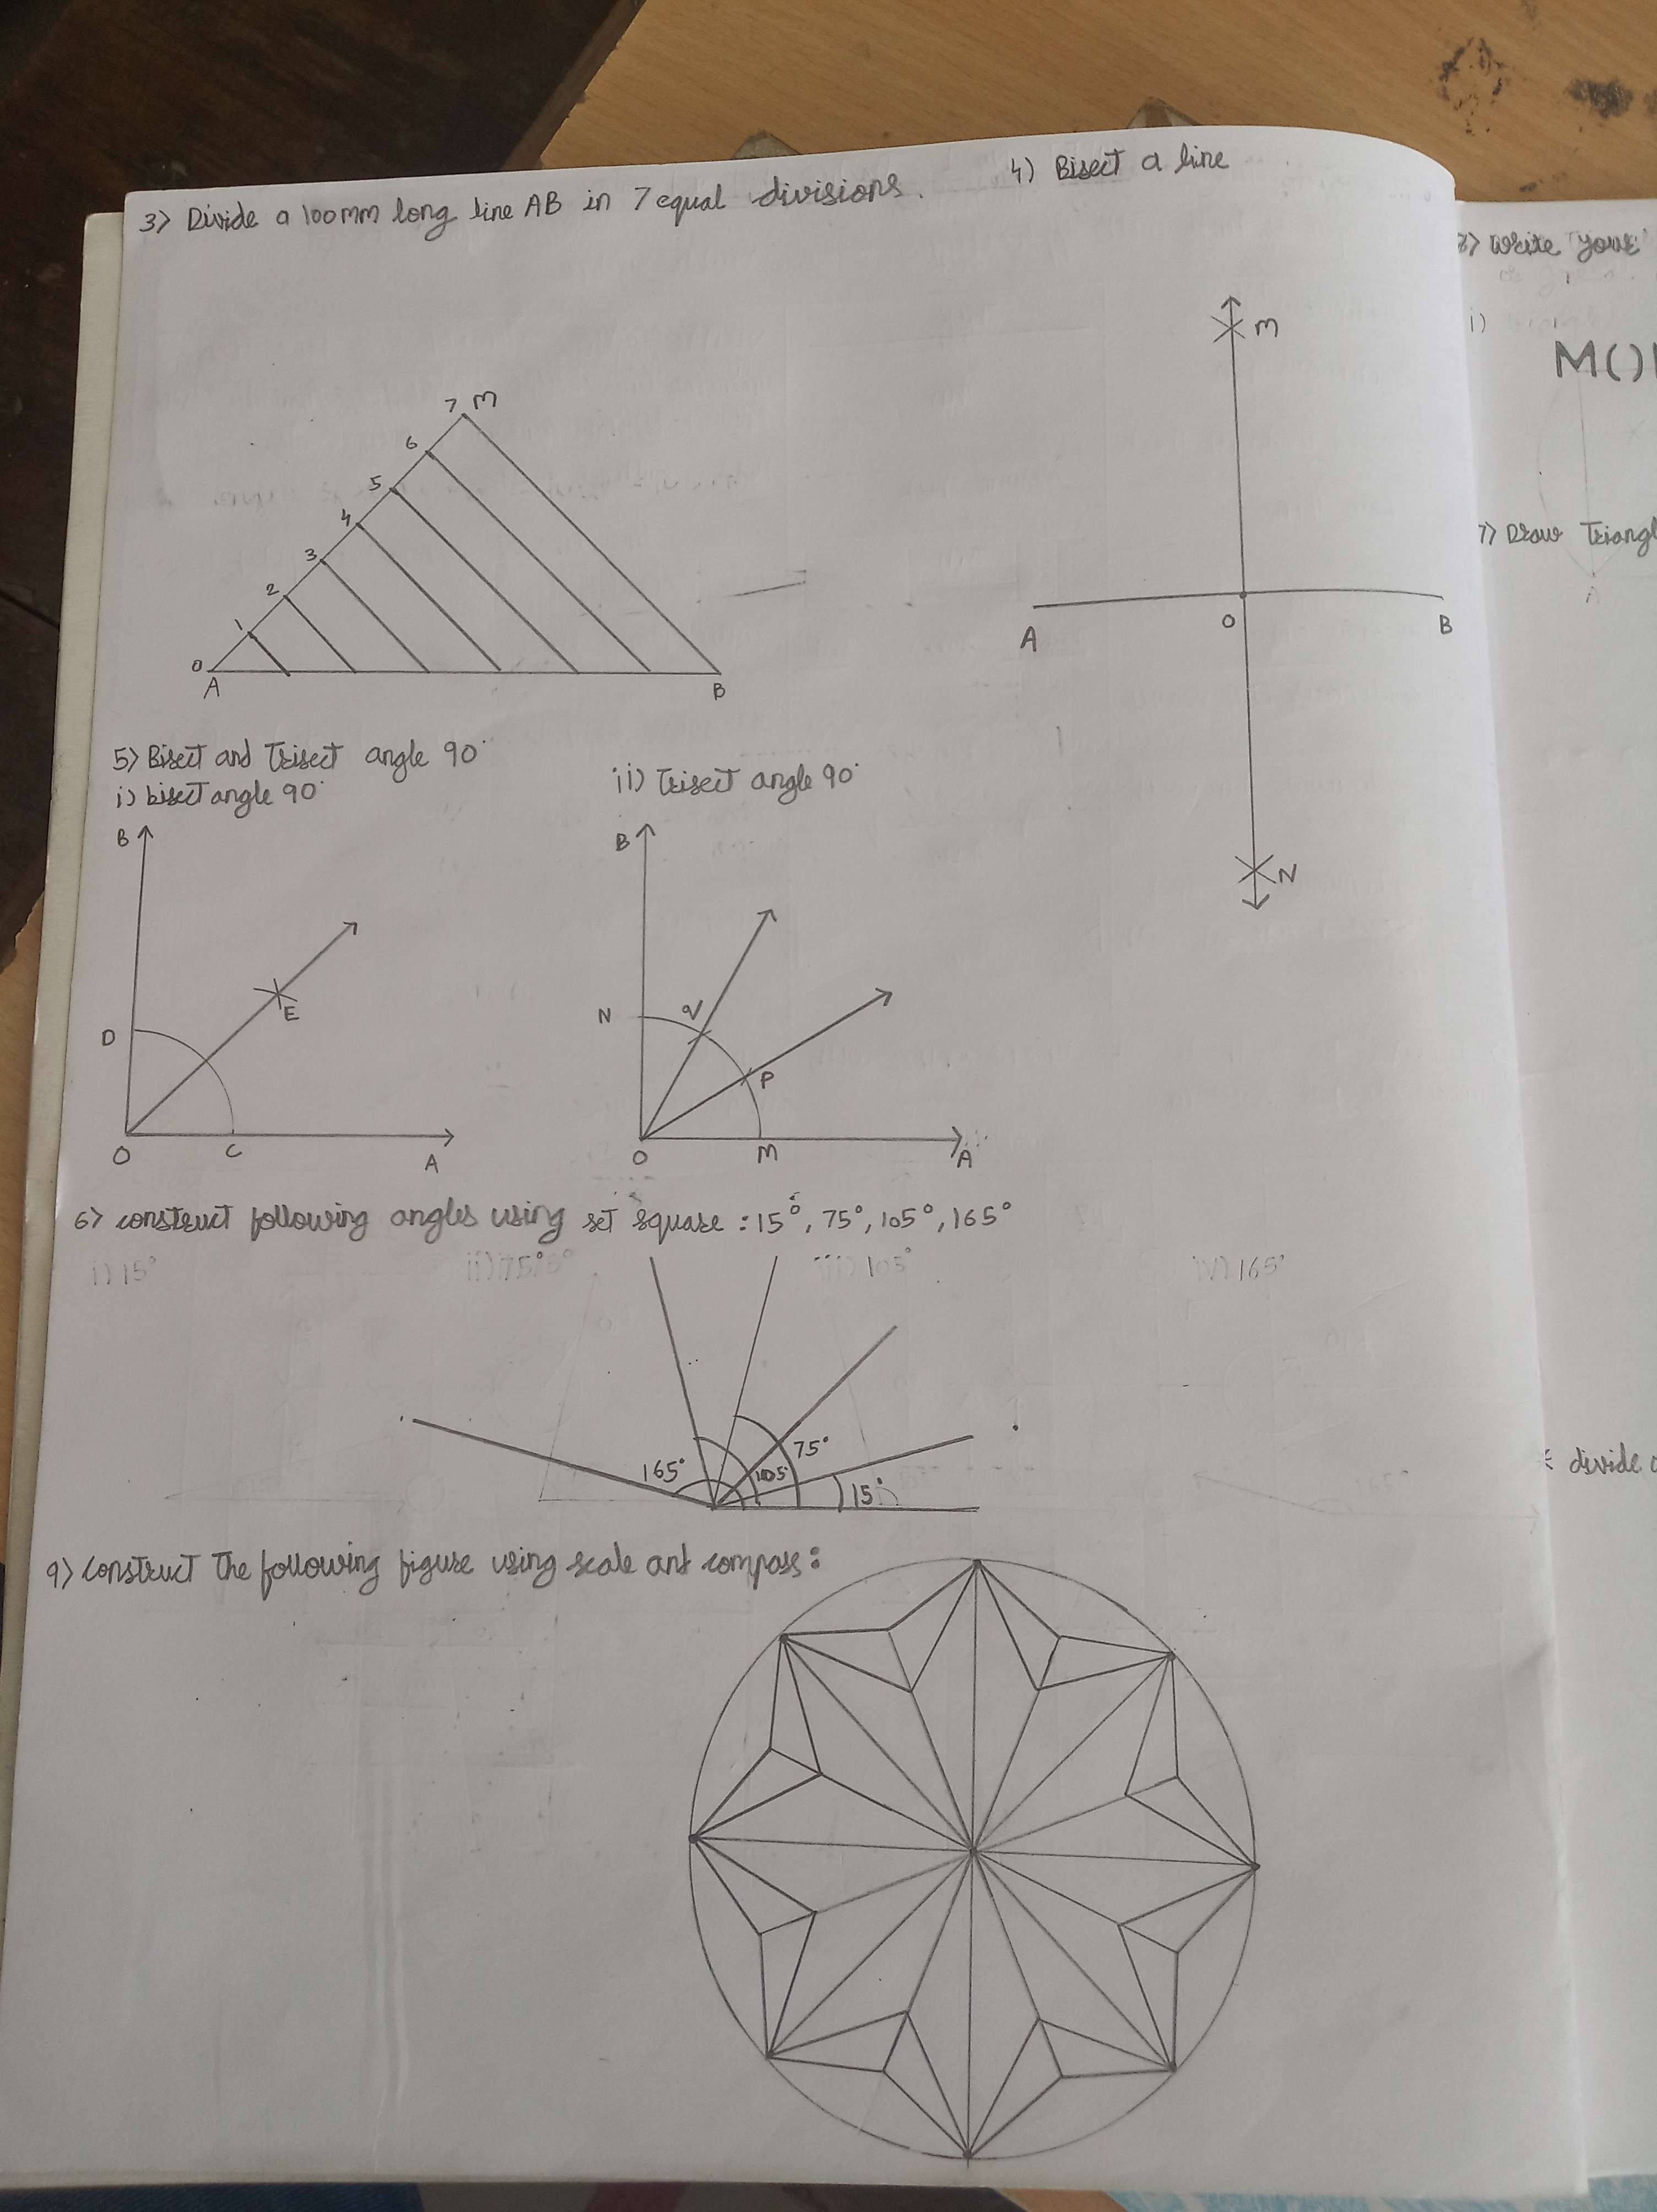 3> Divide a 100mm long line AB in 7 equal divisions.
4) Bisect a line
M
A
O
B
N
7 M
6
5
4
3
2
1
0
A
B
5> Bisect and Trisect angle 90°
i) bisect angle 90°
ii) Trisect angle 90°
B
D
E
O
C
A
B
N
P
O
M
A
6> construct following angles using set square : 15°, 75°, 105°, 165°
i) 15°
iii) 105°
iv) 165°
165°
105°
75°
15°
9> construct the following figure using scale ant compass:
8> Write your
i)
7> Draw Triangl
A
divide